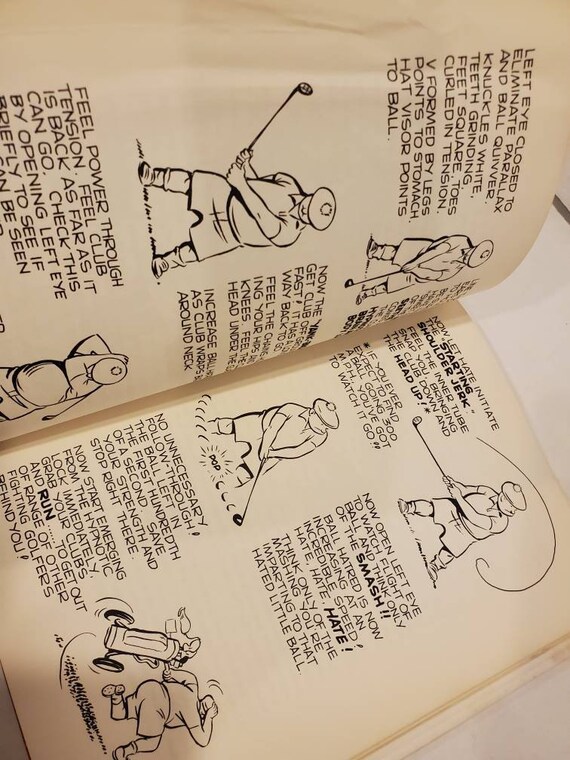 LEFT EYE CLOSED TO
ELIMINATE PARALLAX
AND BALL QUIVVER.
KNUCKLES WHITE,
TEETH GRINDING,
FEET SQUARE. TOES
CURLED IN TENSION.
V FORMED BY LEGS
POINTS TO STOMACH.
HAT VISOR POINTS
TO BALL.
NOW THE
GET CLUB
FAST! IT HAS A
WAY BACK
FEEL THE
ING YOUR
KNEES. FEEL THE
HEAD UNDER THE
INCREASE BALL
AS CLUB
AROUND NECK
FEEL POWER THROUGH
TENSION. FEEL CLUB
IS BACK AS FAR AS IT
CAN GO. CHECK THIS
BY OPENING LEFT EYE
BRIEFLY TO SEE IF
CAN BE SEEN
NOW LET HATE INITIATE
THE "STARTING
SHOULDER JERK"
FEEL THE INNER TUBE
SNAP YOU DOWN
THE CLUB BRINGING AND
HEAD UP!*
*IF YOU EVER
GO TO HIT 300
BALLS YOU'VE GOT
TO WATCH
YOU GO!!
NOW OPEN LEFT EYE
TO WATCH FLIGHT
OF BALL AND THINK ONLY
SMASH!!
BALL HATRED IS NOW
INCREASING AT AN
INCREDIBLE SPEED!
HATE, HATE, HATE!
THINK ONLY OF THE
MESSAGE YOU'RE
IMPARTING TO THAT
HATED LITTLE BALL.
POP
NO UNNECESSARY
FOLLOW-THROUGH!
THE BALL LEFT IN
THE FIRST HUNDREDTH
OF A SECOND. SAVE
YOUR STRENGTH AND
STOP RIGHT THERE.
NOW START EMERGING
FROM THE HYPNOTIC
LOCK IMMEDIATELY.
GRAB YOUR CLUBS,
AND RUN..... TO GET OUT
OF RANGE OF OTHER
FIGHTING GOLFERS
BEHIND YOU!